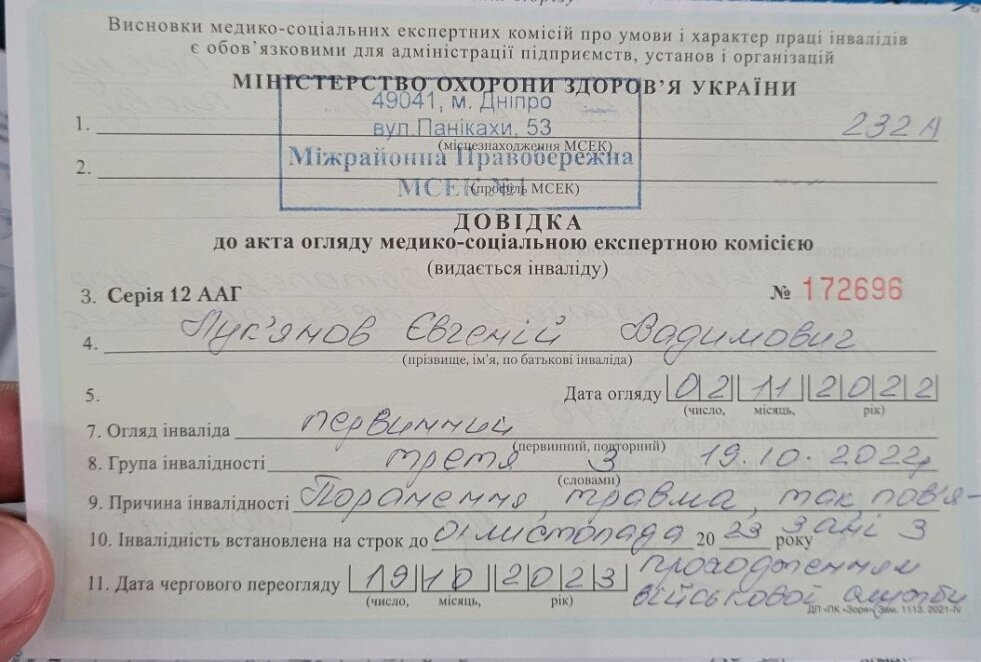 Висновки медико-соціальних експертних комісій про умови і характер праці інвалідів
є обов'язковими для адміністрації підприємств, установ і організацій
МІНІСТЕРСТВО ОХОРОНИ ЗДОРОВ'Я УКРАЇНИ
49041, м. Дніпро
1. вул.Панікахи, 53 232 А
(місцезнаходження МСЕК)
Міжрайонна Правобережна
2. МСЕК №1
(профіль МСЕК)
ДОВІДКА
до акта огляду медико-соціальною експертною комісією
(видається інваліду)
3. Серія 12 ААГ № 172696
4. Лук'янов Євгеній Вадимович
(прізвище, ім'я, по батькові інваліда)
5. Дата огляду 02 11 2022
(число, місяць, рік)
7. Огляд інваліда первинний
(первинний, повторний)
8. Група інвалідності третя 3 19.10.2022р
(словами)
9. Причина інвалідності Поранення, травма, так, пов'я-
10. Інвалідність встановлена на строк до 01 листопада 20 23 року зані з
11. Дата чергового переогляду 19 10 2023 проходженням
(число, місяць, рік) військової служби
ДП «ПК «Зоря» Зам. 1113. 2021-IV